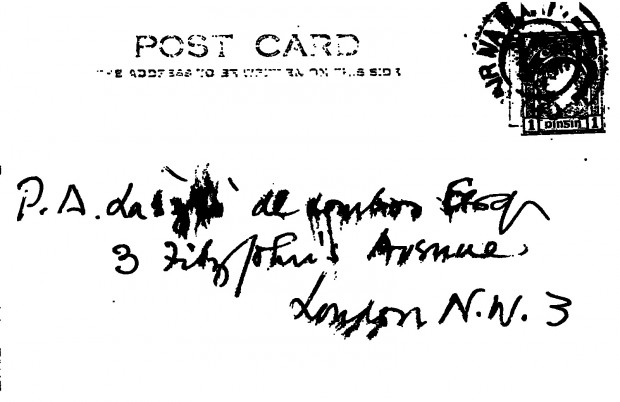 POST CARD
THE ADDRESS TO BE WRITTEN ON THIS SIDE
1 pinsin 1
P. A. László de Lombos Esq
3 Fitzjohn's Avenue.
London N.W. 3